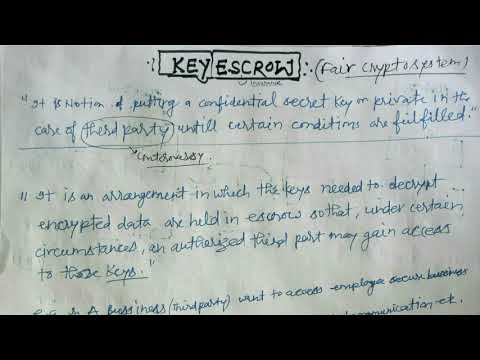 KEY ESCROW : (Fair cryptosystem)
"It is Notion of putting a confidential secret key or private in the
case of third party until certain conditions are fulfilled."
controversy.
"It is an arrangement in which the keys needed to decrypt
encrypted data are held in escrow so that, under certain
circumstances, an authorized third part may gain access
to those keys."
A bussiness (third party) want to access employee secure bussiness
communication etc.